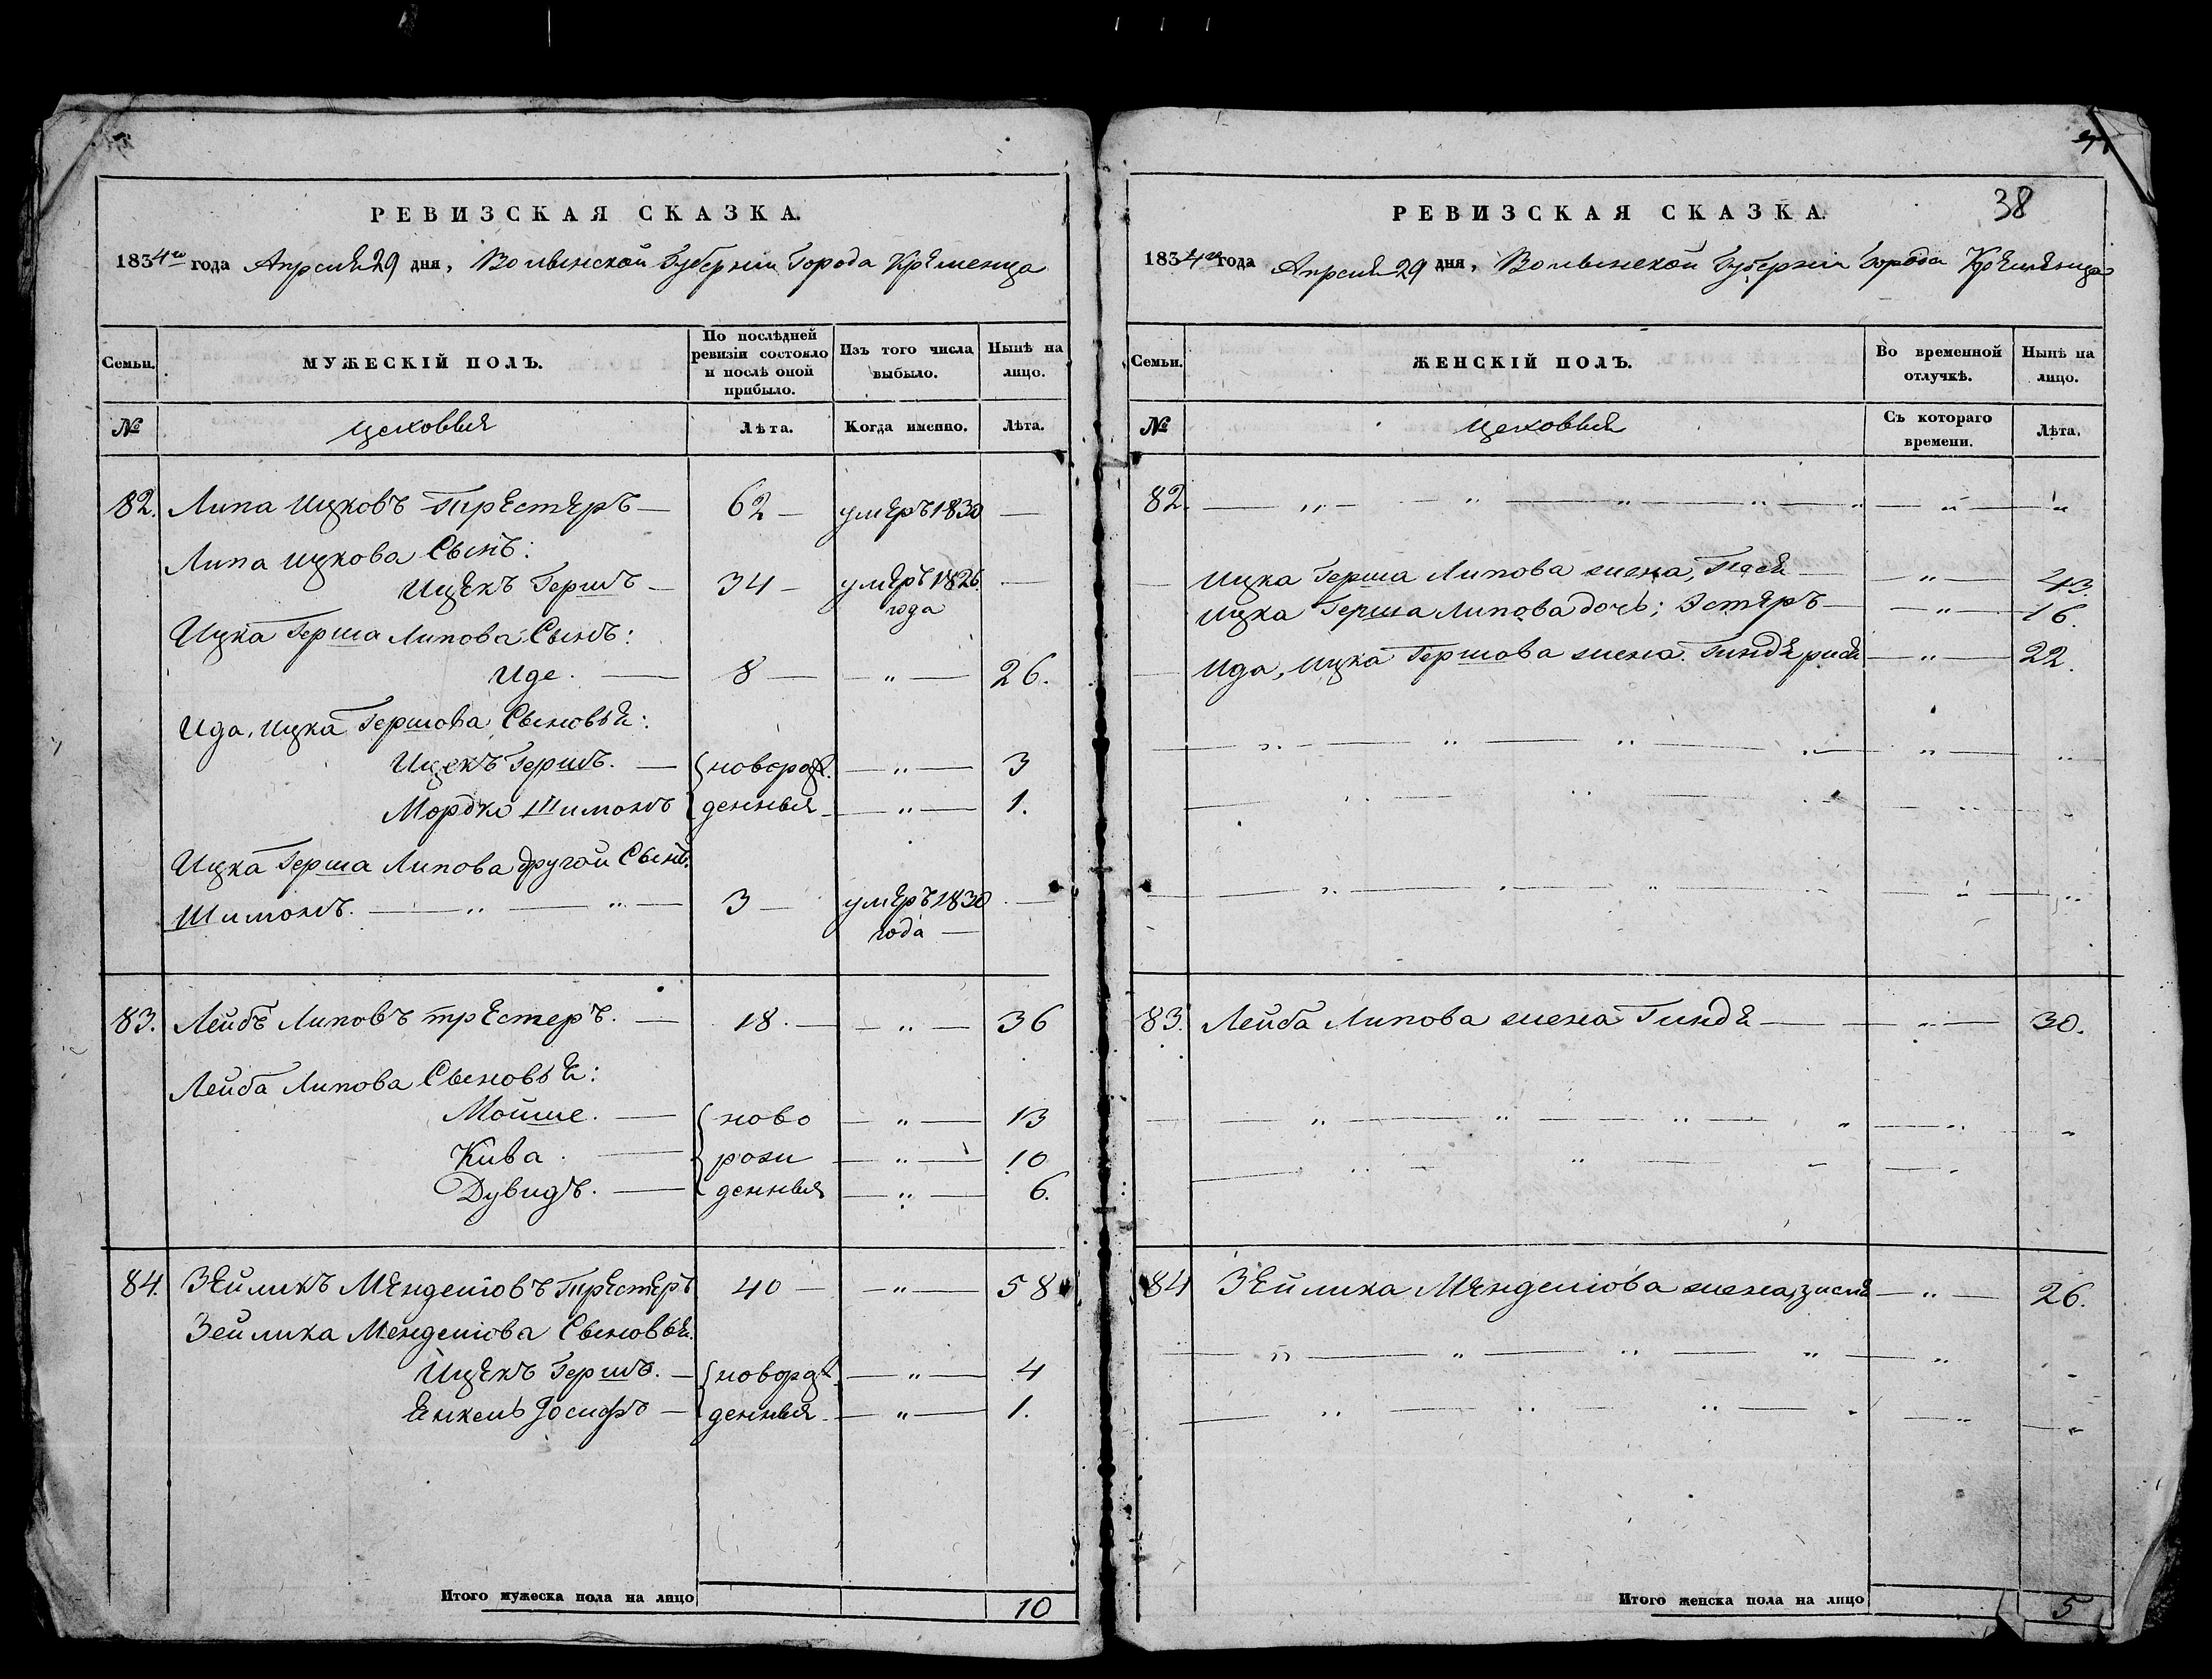 РЕВИЗСКАЯ СКАЗКА.
1834го года Апреля 29 дня, Волынской Губернии Города Кременца
Семьи. МУЖЕСКІЙ ПОЛЪ. По послѣдней ревизіи состояло и послѣ оной прибыло. Изъ того числа выбыло. Нынѣ на лицо.
№ цеховыя Лѣта. Когда именно. Лѣта.
82. Липа Ицковъ Трестеръ — 62 — умеръ 1830 —
Липа Ицкова Сынъ:
Ицекъ Гершъ — 34 — умеръ 1826 —
года
Ицка Герша Липова Сынъ:
Иде. — 8 — — „ — 26.
Ида, Ицка Гершова Сыновья:
Ицекъ Гершъ. — новорож. — „ — 3
Мордко Шимонъ денныя — „ — 1.
Ицка Герша Липова другой Сынъ.
Шимонъ. — „ — „ — 3 — умеръ 1830 —
года —
83. Лейбъ Липовъ трестеръ. — 18. — — „ — 36
Лейба Липова Сыновья:
Мойше. — ново — „ — 13
Кива. — рож — „ — 10
Дувидъ. — денныя — „ — 6.
84. Зейликъ Менделiовъ Трестеръ 40 — — „ — 58
Зейлика Менделiова Сыновья.
Ицекъ Гершъ. — новорож — „ — 4
Енкель Иосифъ — денныя — „ — 1.
Итого мужеска пола на лицо 10
38
РЕВИЗСКАЯ СКАЗКА.
1834го года Апреля 29 дня, Волынской Губернии Города Кременца
Семьи. ЖЕНСКІЙ ПОЛЪ. Во временной отлучкѣ. Нынѣ на лицо.
№ цеховыя Съ котораго времени. Лѣта.
82. — „ — „ — „ — „ — „ — „ — „
— Ицка Герша Липова жена, Песя — — „ — 43.
Ицка Герша Липова дочь; Эстеръ — — „ — 16.
— Ида, Ицка Гершова жена. Гинде рися — „ — 22.
83. Лейба Липова жена Гиндя — — „ — 30.
84 Зейлика Менделiова жена, зися — „ — 26.
Итого женска пола на лицо 5